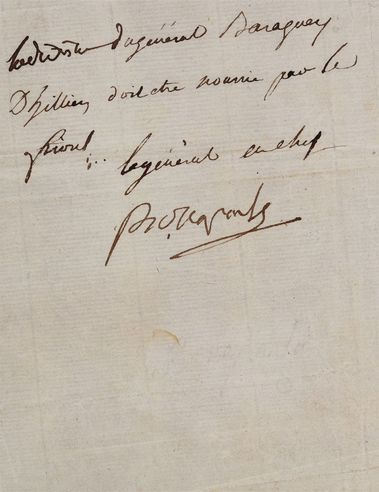 la division du général Baraguey
Dhilliers doit etre nourrie par le
frioul... le général en chef
Bonaparte